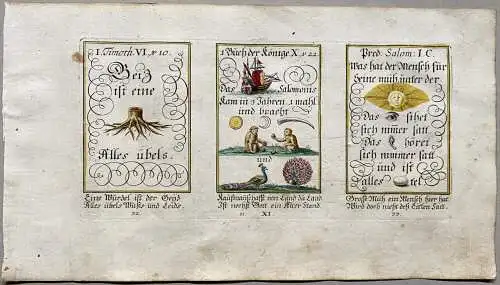 I. Timoth. VI. v. 10.
Geiß
ist eine
Alles übels.
Eine Würdel ist der Geiß
Alles übels Müße und Leide.
22.
1 Buch der Könige X v. 22
Das Salomonis
Kam in 3 Jahren 1 mahl
und bracht
und
Kauffmanschafft von Land du Land
Ist nechst Gott ein Stand.
21
XI
Pred. Salom: I C
Was hat der Mensch für
Seine müh unter der
Das sihet
sich nimer satt
Das höret
sich nimmer satt
und ist
alles tel.
Große Müh ein Mensch hier hat
Wird doch nicht deß Satt.